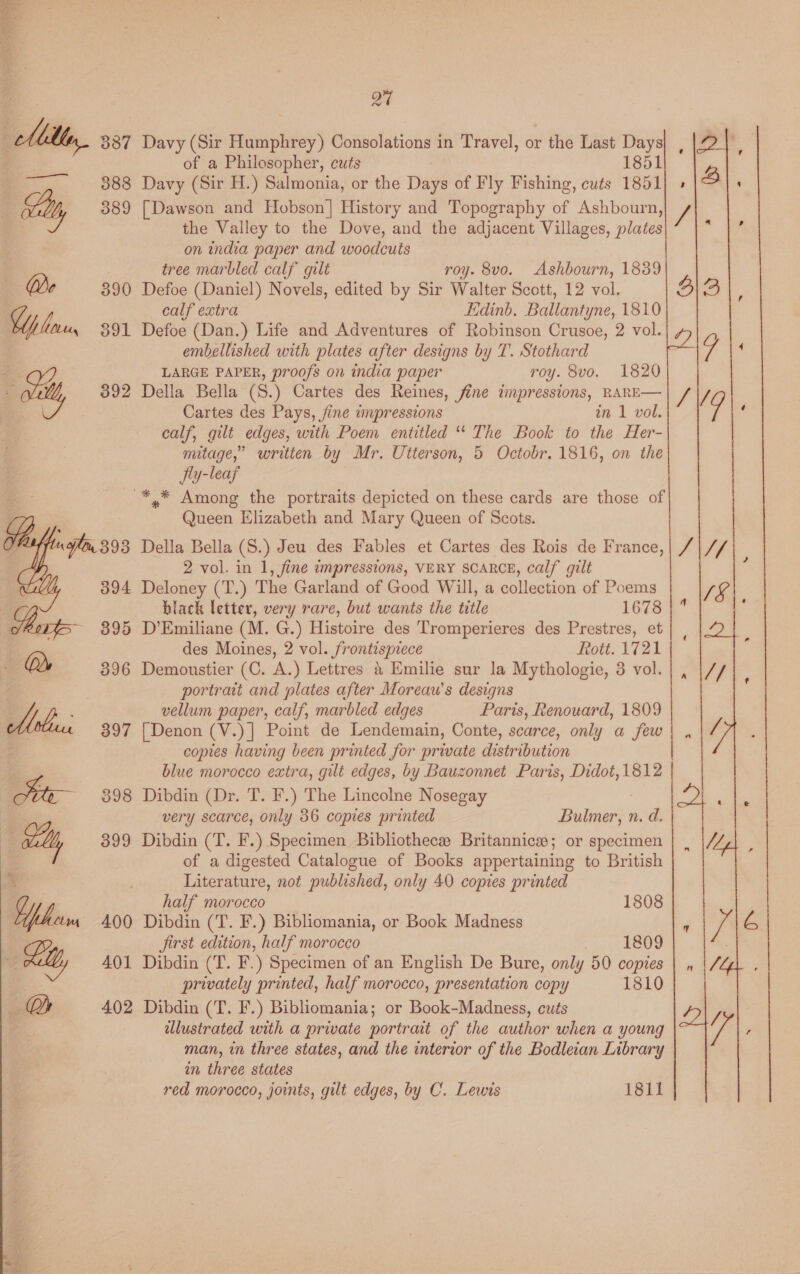 27
Miller 387 Davy (Sir Humphrey) Consolations in Travel, or the Last Days , 2 ,
of a Philosopher, cuts 1851
388 Davy (Sir H.) Salmonia, or the Days of Fly Fishing, cuts 1851 , 3 ,
Lilly 389 [Dawson and Hobson] History and Topography of Ashbourn, / , ,
the Valley to the Dove, and the adjacent Villages, plates
on india paper and woodcuts
tree marbled calf gilt roy. 8vo. Ashbourn, 1839
390 Defoe (Daniel) Novels, edited by Sir Walter Scott, 12 vol. 3 3 ,
calf extra Edinb. Ballantyne, 1810
Upham 391 Defoe (Dan.) Life and Adventures of Robinson Crusoe, 2 vol. 2 9 ,
embellished with plates after designs by T. Stothard
LARGE PAPER, proofs on india paper roy. 8vo. 1820
Lilly 392 Della Bella (S.) Cartes des Reines, fine impressions, RARE— 1 19 ,
Cartes des Pays, fine impressions in 1 vol.
calf, gilt edges, with Poem entitled “ The Book to the Her-
mitage,” written by Mr. Utterson, 5 Octobr. 1816, on the
fly-leaf
*⁎* Among the portraits depicted on these cards are those of
Queen Elizabeth and Mary Queen of Scots.
393 Della Bella (S.) Jeu des Fables et Cartes des Rois de France, 1 11 ,
2 vol. in 1, fine impressions, VERY SCARCE, calf gilt
Lilly 394 Deloney (T.) The Garland of Good Will, a collection of Poems „ 18 .
black letter, very rare, but wants the title 1678
395 D’Emiliane (M. G.) Histoire des Tromperieres des Prestres, et , 2 ,
des Moines, 2 vol. frontispiece Rott. 1721
396 Demoustier (C. A.) Lettres à Emilie sur la Mythologie, 3 vol. „ 11 ,
portrait and plates after Moreau's designs
vellum paper, calf, marbled edges Paris, Renouard, 1809
Molini 397 [Denon (V.)] Point de Lendemain, Conte, scarce, only a few
copies having been printed for private distribution
blue morocco extra, gilt edges, by Bauzonnet Paris, Didot, 1812
398 Dibdin (Dr. T. F.) The Lincolne Nosegay 2 . .
very scarce, only 36 copies printed Bulmer, n. d.
Lilly 399 Dibdin (T. F.) Specimen Bibliothecæ Britannicæ; or specimen „ 14 ,
of a digested Catalogue of Books appertaining to British
Literature, not published, only 40 copies printed
half morocco 1808
Upham 400 Dibdin (T. F.) Bibliomania, or Book Madness „ 7 6
first edition, half morocco 1809
Lilly 401 Dibdin (T. F.) Specimen of an English De Bure, only 50 copies „ 14 ,
privately printed, half morocco, presentation copy 1810
402 Dibdin (T. F.) Bibliomania; or Book-Madness, cuts
illustrated with a private portrait of the author when a young
man, in three states, and the interior of the Bodleian Library
in three states
red morocco, joints, gilt edges, by C. Lewis 1811